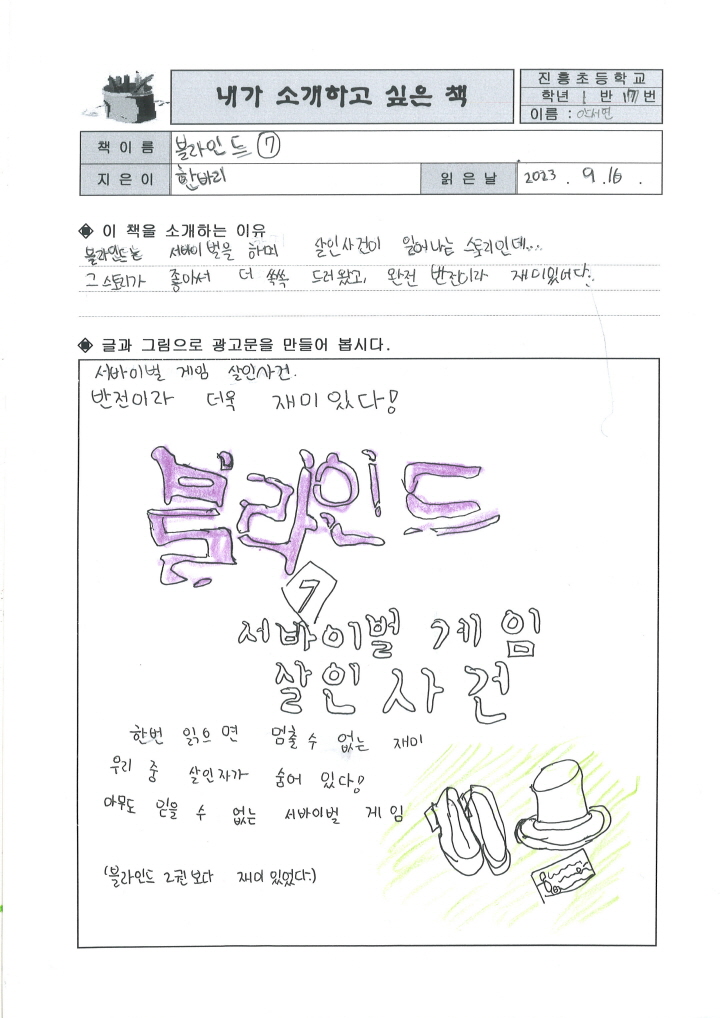 내가 소개하고 싶은 책
진흥초등학교
학년 1 반 17번
이름 :
책 이름 블라인드 ⑦
지은이 한바리 읽은날 2023 . 9 . 16 .
◈ 이 책을 소개하는 이유
블라인드는 서바이벌을 하며 살인사건이 일어나는 스토리인데...
그 스토리가 좋아서 더 쏙쏙 드러왔고, 완전 반전이라 재미있어다.
◈ 글과 그림으로 광고문을 만들어 봅시다.
서바이벌 게임 살인사건.
반전이라 더욱 재미있다!
블라인드
7
서바이벌 게임
살인사건
한번 읽으면 멈출 수 없는 재미
우리 중 살인자가 숨어 있다!
아무도 믿을 수 없는 서바이벌 게임
(블라인드 2권보다 재미있었다.)